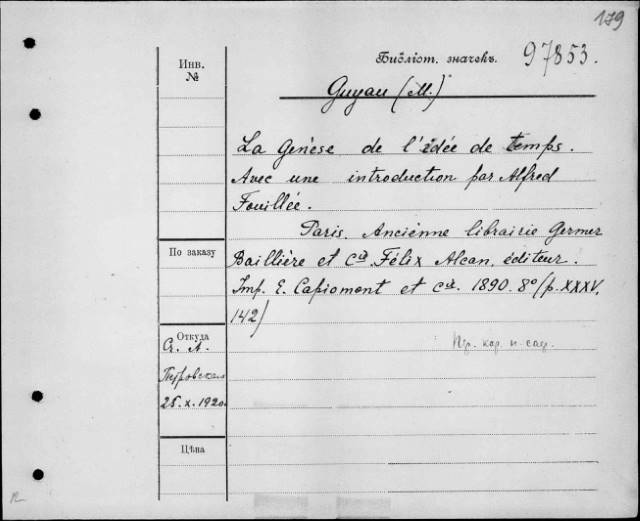 179
Инв.
№
Библіот. значекъ. 97853.
Guyau (M.)
La Genèse de l'idée de temps.
Avec une introduction par Alfred
Fouillée.
Paris. Ancienne librairie Germer
По заказу
Baillière et Cie. Félix Alcan, éditeur.
Imp. E. Capiomont et Cie. 1890. 8° (p. XXXV,
142)
Откуда
С. А.
25.X.1920.
Цѣна